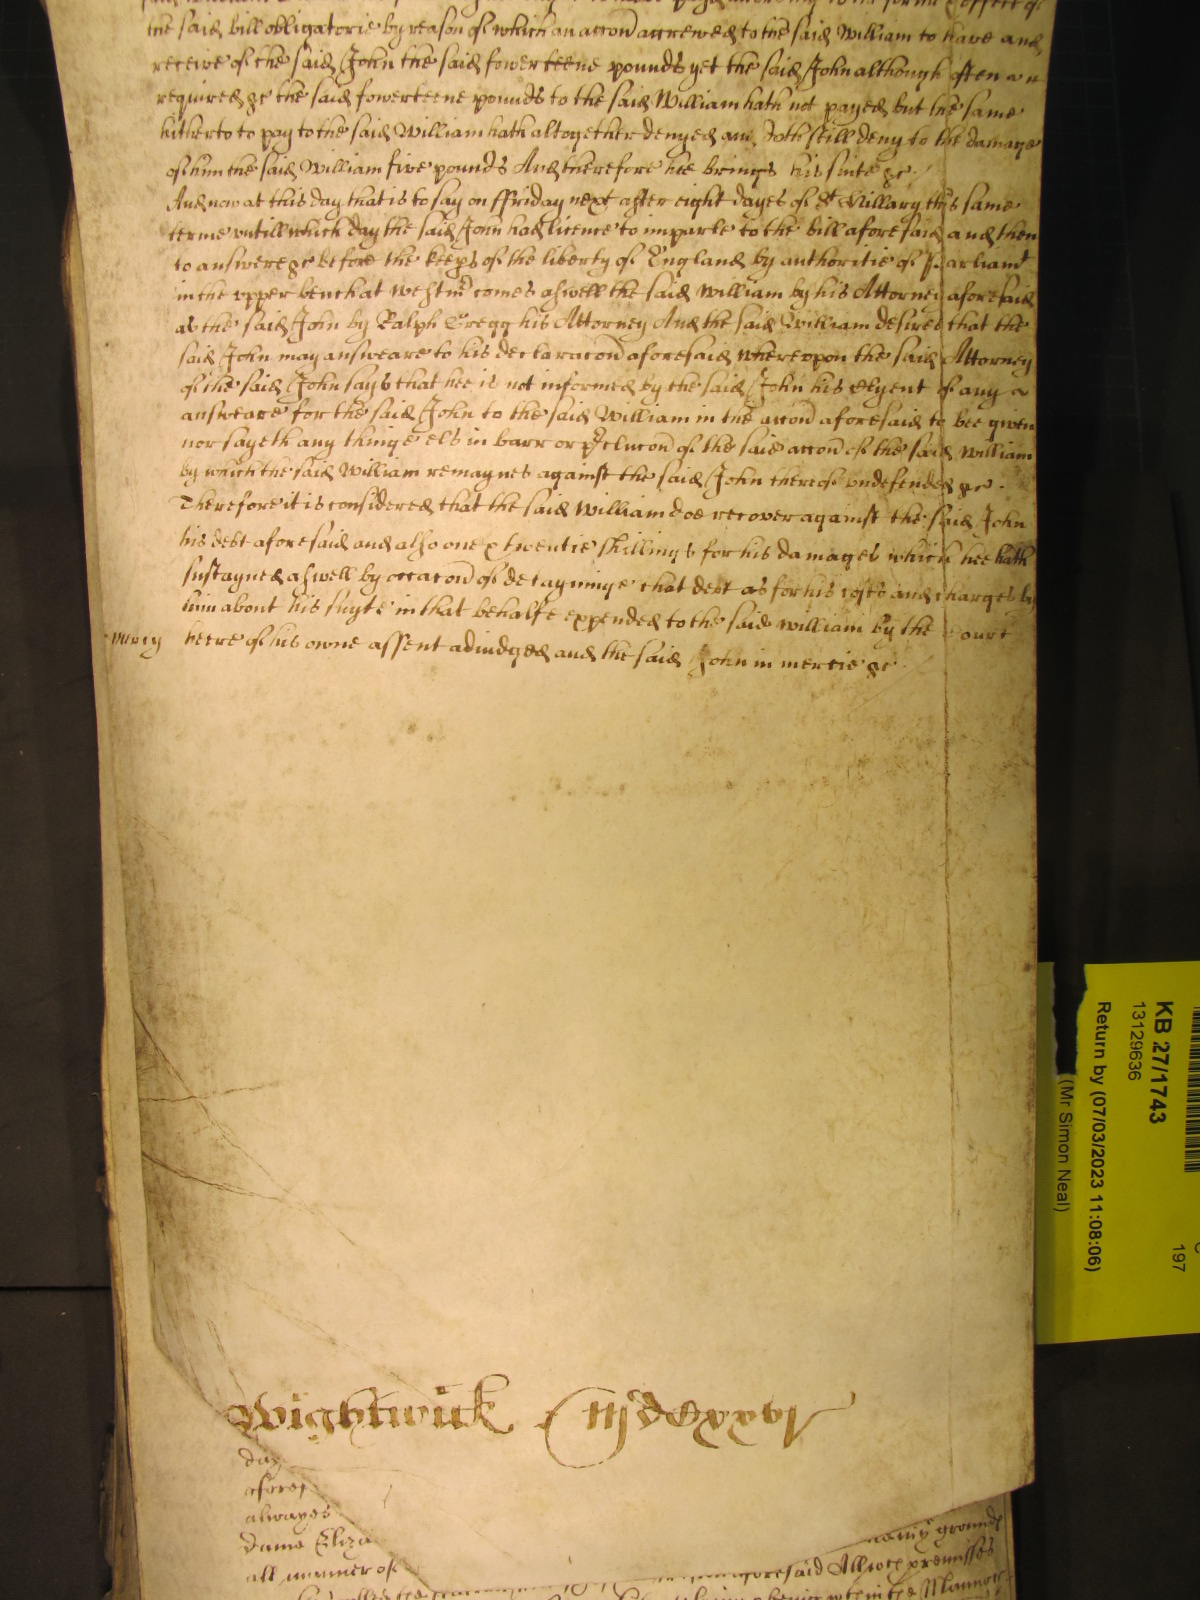 the said bill obligatorie by reason of which an accon accrewed to the said William to have and
receive of the said John the said fowerteene pounds yet the said John although often
required &c the said fowerteene pounds to the said William hath not payed but the same
hitherto to pay to the said William hath altogether denyed and doth still deny to the damage
of him the said William five pounds And therefore hee brings his suite &c.
And now at this day that is to say on ffriday next after eight dayes of St Hillary this same
terme untill which day the said John had licence to imparle to the bill aforesaid and then
to answere &c before the keeps of the liberty of England by authoritie of Parliamt
in the upper bench at Westmr comes aswell the said William by his Attorney aforesaid
as the said John by Ralph Gregg his Attorney And the said William desires that the
said John may answeare to his declaracon aforesaid whereupon the said Attorney
of the said John says that hee is not informed by the said John his Clyent of any
answeare for the said John to the said William in the accon aforesaid to bee given
nor sayeth any thinge els in barr or pclucon of the said accon of the said William
by which the said William remaynes against the said John thereof undefended &c.
Therefore it is considered that the said William doe recover against the said John
his debt aforesaid and also one & twentie shillings for his damages which hee hath
sustayned aswell by occacon of detayninge that debt as for his costs and charges by
him about his suyte in that behalfe expended to the said William by the Court
mercy
heere of his owne assent adiudged and the said John in mercie &c.
Wightwick
MDCxxvj
day
alwayes
dame Eliza
all manner of
many grounds
aforesaid All wch premisses
being wthin the Mannor
KB 27/1743
13129636
Return by (07/03/2023 11:08:06)
(Mr Simon Neal)
197